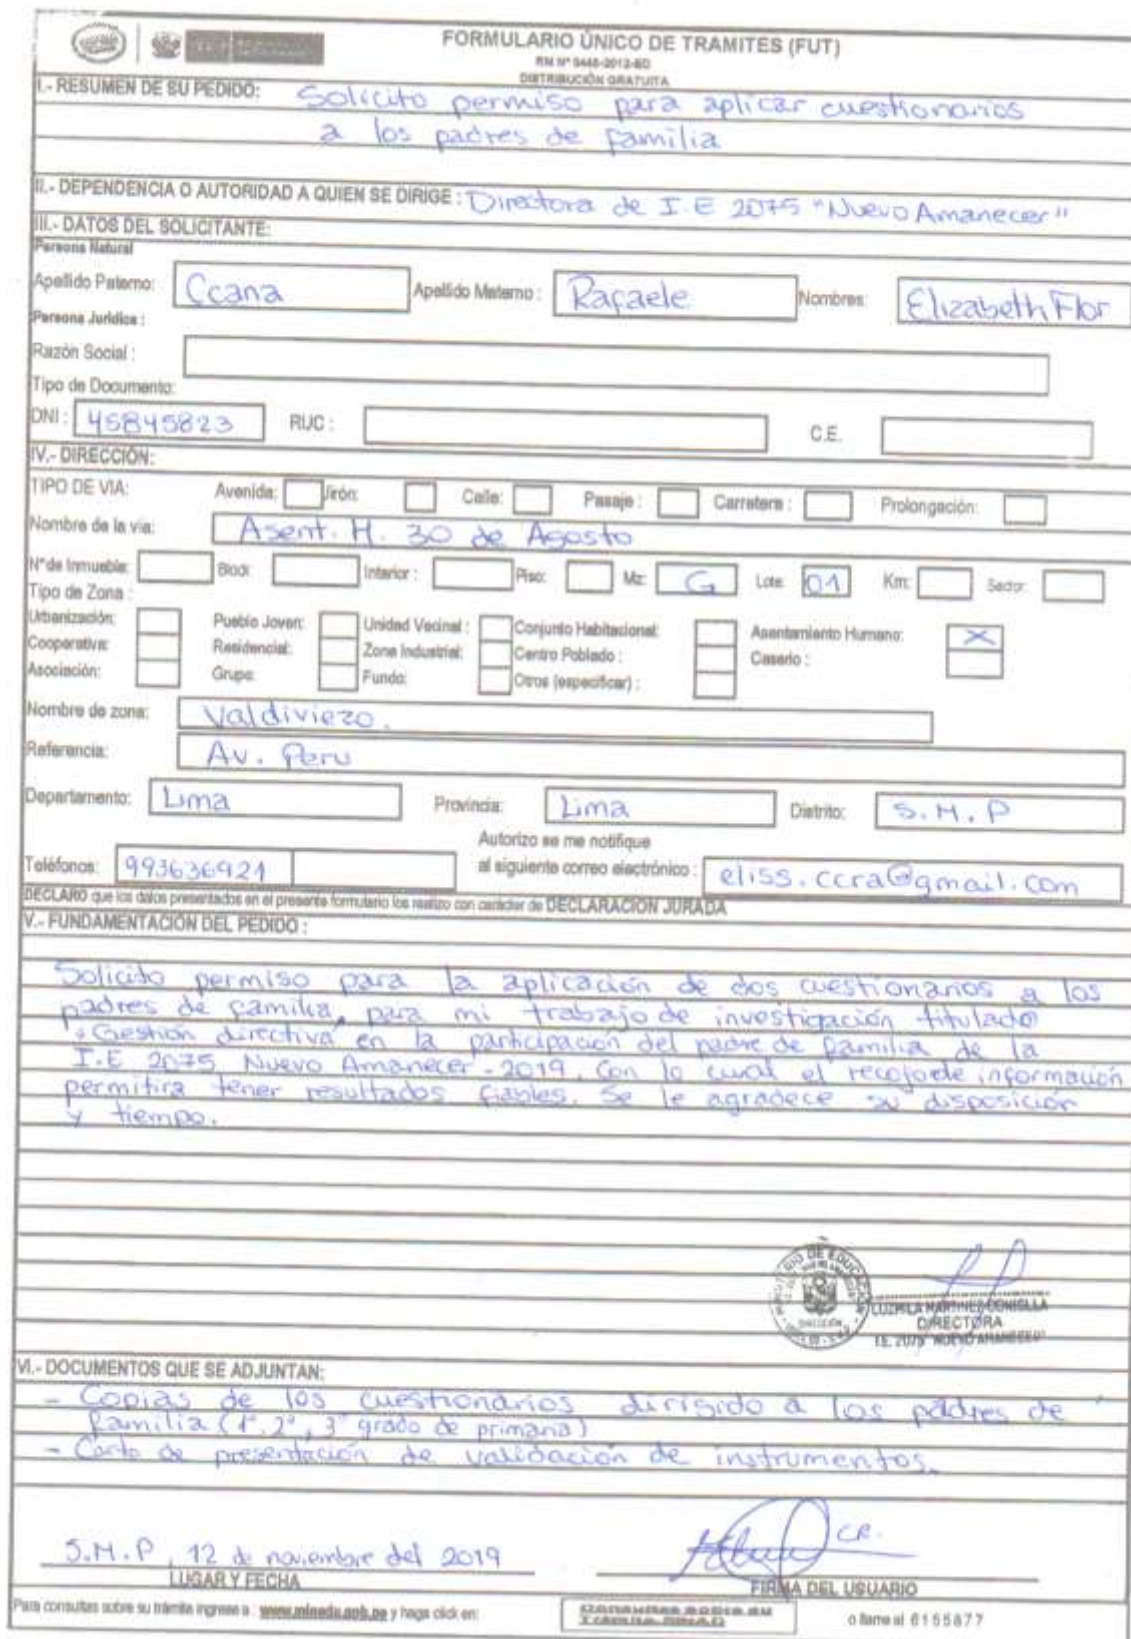 FORMULARIO ÚNICO DE TRAMITES (FUT)
RM N° 0445-2012-ED
DISTRIBUCIÓN GRATUITA
I.- RESUMEN DE SU PEDIDO: Solicito permiso para aplicar cuestionarios
a los padres de familia
II.- DEPENDENCIA O AUTORIDAD A QUIEN SE DIRIGE : Directora de I.E 2075 "Nuevo Amanecer"
III.- DATOS DEL SOLICITANTE:
Persona Natural
Apellido Paterno: Ccana Apellido Materno : Rafaele Nombres: Elizabeth Flor
Persona Juridica :
Razón Social :
Tipo de Documento:
DNI : 45845823 RUC : C.E.
IV.- DIRECCIÓN:
TIPO DE VIA: Avenida: Jirón: Calle: Pasaje : Carretera : Prolongación:
Nombre de la via: Asent. H. 30 de Agosto
N° de Inmueble: Block: Interior : Piso: Mz: G Lote: 01 Km: Sector:
Tipo de Zona :
Urbanización: Pueblo Joven: Unidad Vecinal : Conjunto Habitacional: Asentamiento Humano: X
Cooperativa: Residencial: Zona Industrial: Centro Poblado : Caserio :
Asociación: Grupo: Fundo: Otros (especificar) :
Nombre de zona: Valdiviezo.
Referencia: Av. Peru
Departamento: Lima Provincia: Lima Distrito: S.M.P
Autorizo se me notifique
Teléfonos: 993636921 al siguiente correo electrónico : eliss.ccra@gmail.com
DECLARO que los datos presentados en el presente formulario los realizo con carácter de DECLARACION JURADA
V.- FUNDAMENTACIÓN DEL PEDIDO :
Solicito permiso para la aplicación de dos cuestionarios a los
padres de familia, para mi trabajo de investigación titulado
"Gestión directiva en la participación del padre de familia de la
I.E 2075 Nuevo Amanecer - 2019. Con lo cual el recojo de información
permitira tener resultados fiables. Se le agradece su disposición
y tiempo.
MINISTERIO DE EDUCACION
DIRECCIÓN
LUZMILA MARTINEZ
DIRECTORA
I.E. 2075 "NUEVO AMANECER"
VI.- DOCUMENTOS QUE SE ADJUNTAN:
- Copias de los cuestionarios dirigido a los padres de
familia (1°, 2°, 3° grado de primaria)
- Carta de presentación de validación de instrumentos.
S.M.P, 12 de noviembre del 2019
CR.
LUGAR Y FECHA FIRMA DEL USUARIO
Para consultas sobre su trámite ingrese a : www.minedu.gob.pe y haga click en: o llame al 6155877